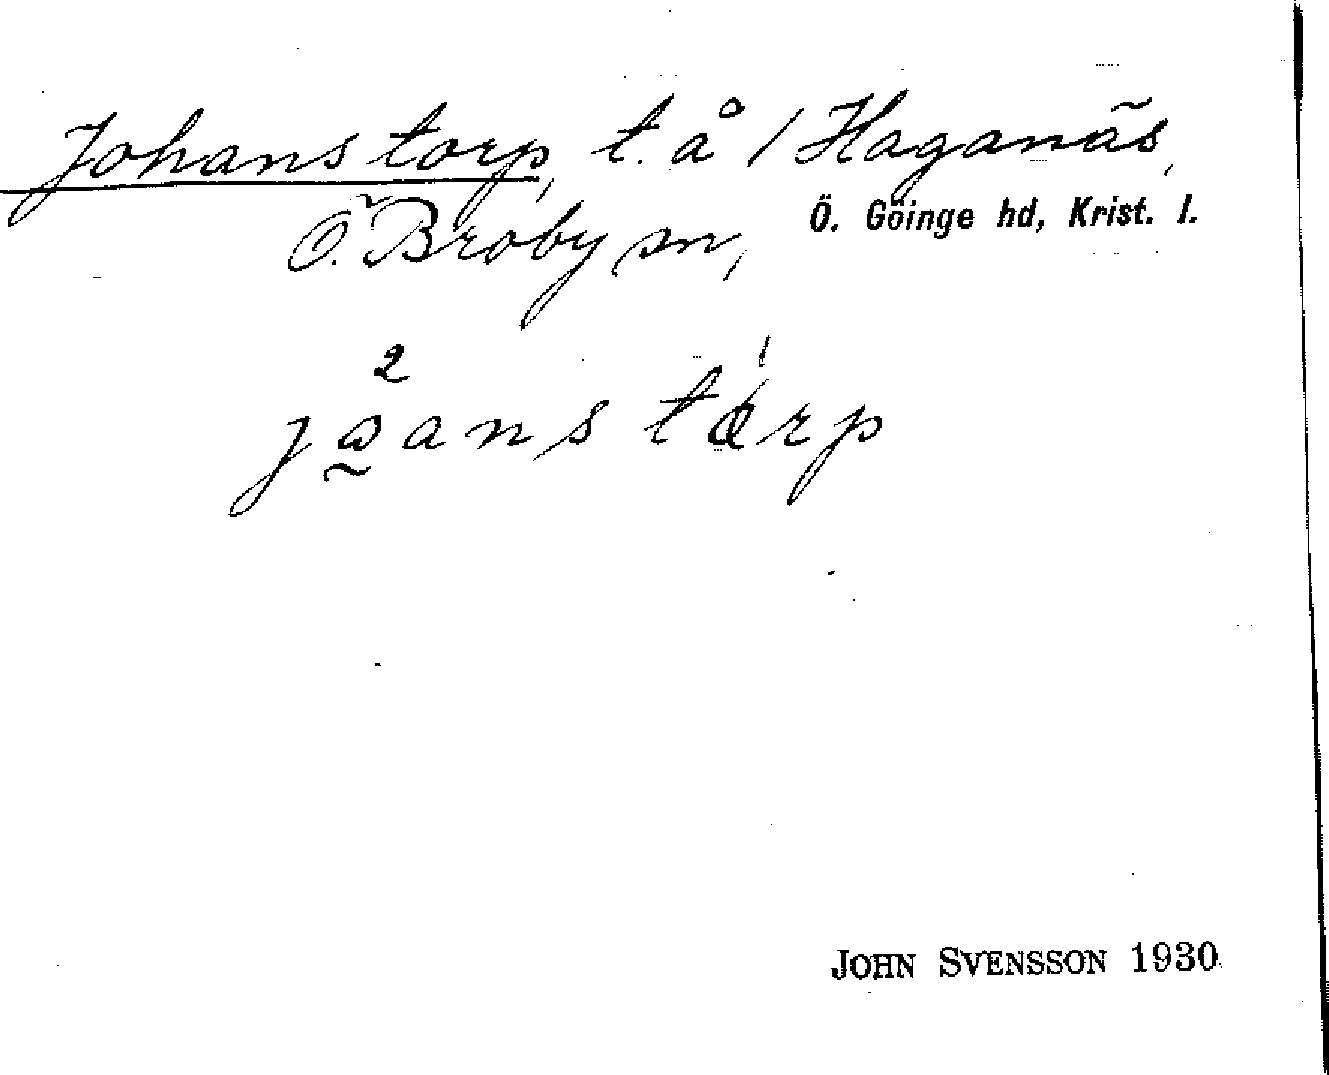 Johanstorp, t. å / Haganäs,
Ö. Broby sn,
Ö. Göinge hd, Krist. l.
JOHN SVENSSON 1930